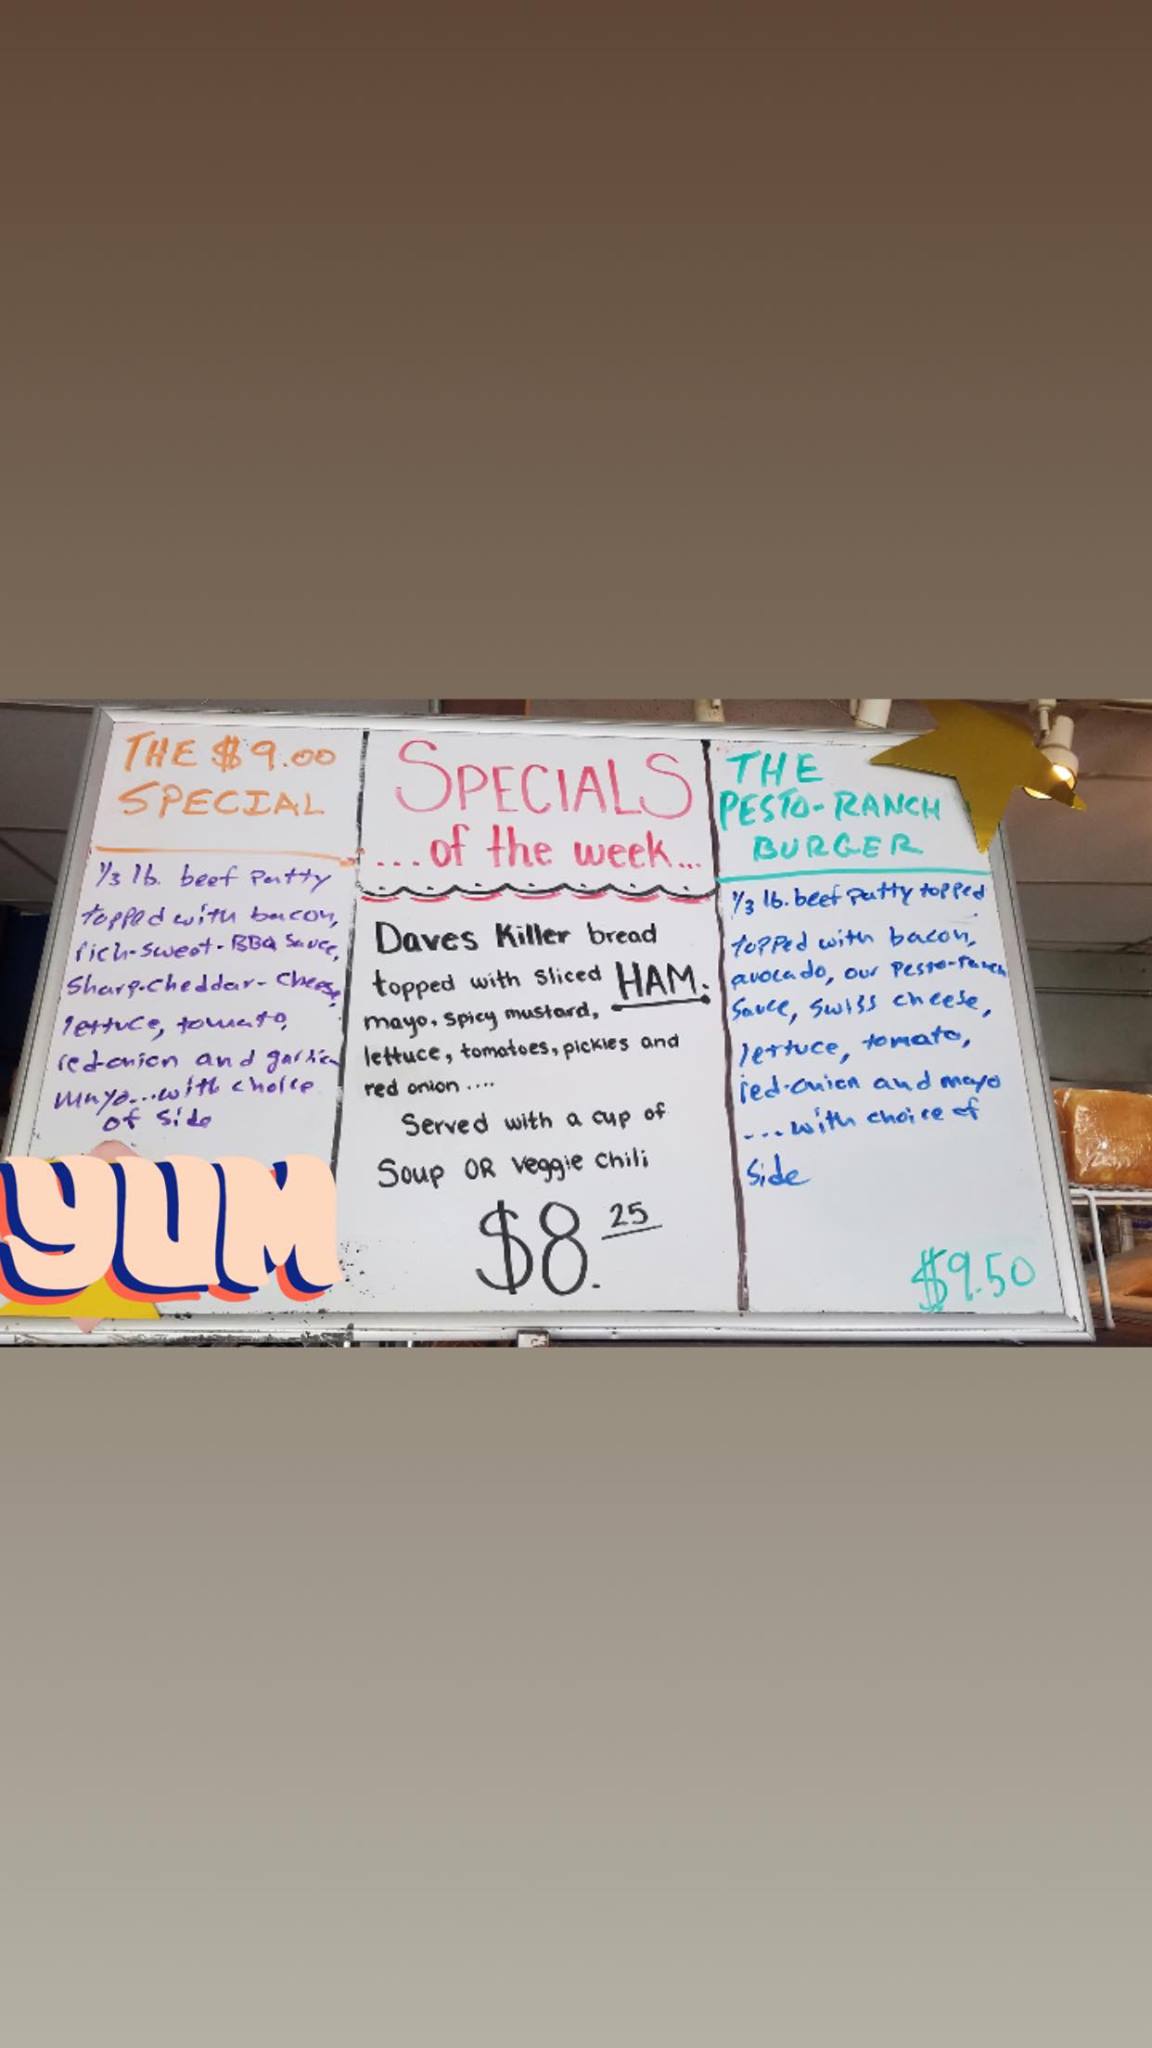 THE $9.00
SPECIAL
1/3 lb. beef patty
topped with bacon,
rich-sweet-BBQ Sauce,
Sharp-cheddar-Cheese,
lettuce, tomato,
red-onion and garlic
mayo...with choice
of side
YUM
SPECIALS
...of the week...
Daves Killer bread
topped with sliced HAM.
mayo, spicy mustard,
lettuce, tomatoes, pickles and
red onion....
Served with a cup of
Soup OR veggie chili
$8.25
THE
PESTO-RANCH
BURGER
1/3 lb. beef patty topped
topped with bacon,
avocado, our Pesto-ranch
Sauce, swiss cheese,
lettuce, tomato,
red-onion and mayo
....with choice of
side
$9.50